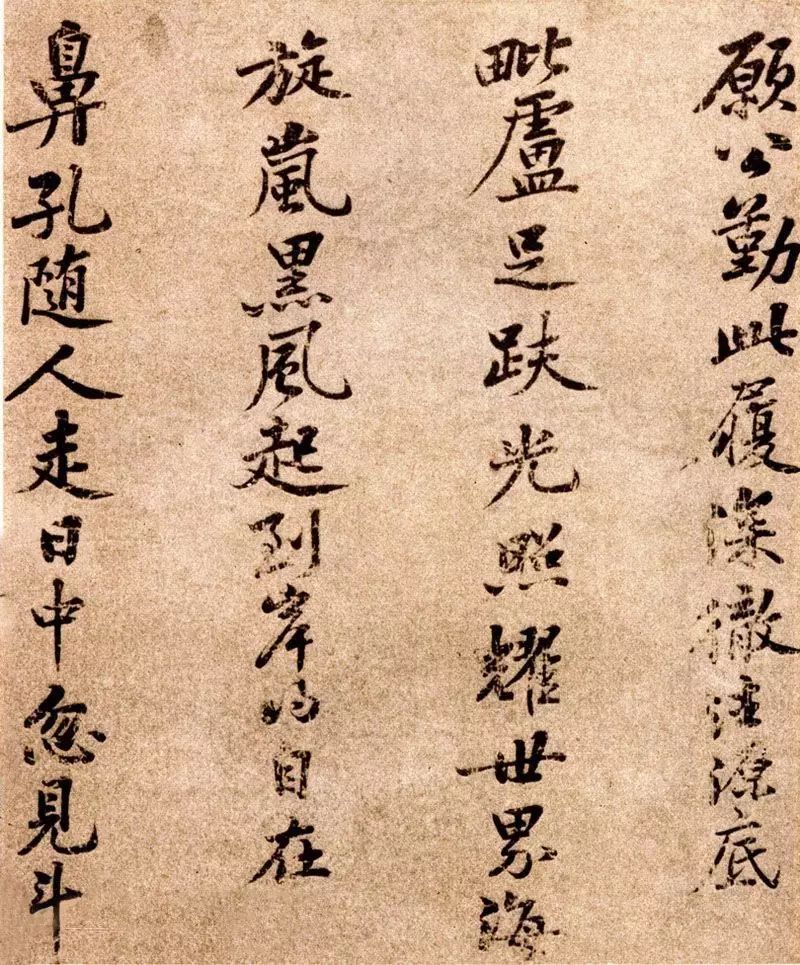 願公勤此履深徹法源底
毗盧足趺光照耀世界海
旋嵐黑風起到岸得自在
鼻孔随人走日中忽見斗